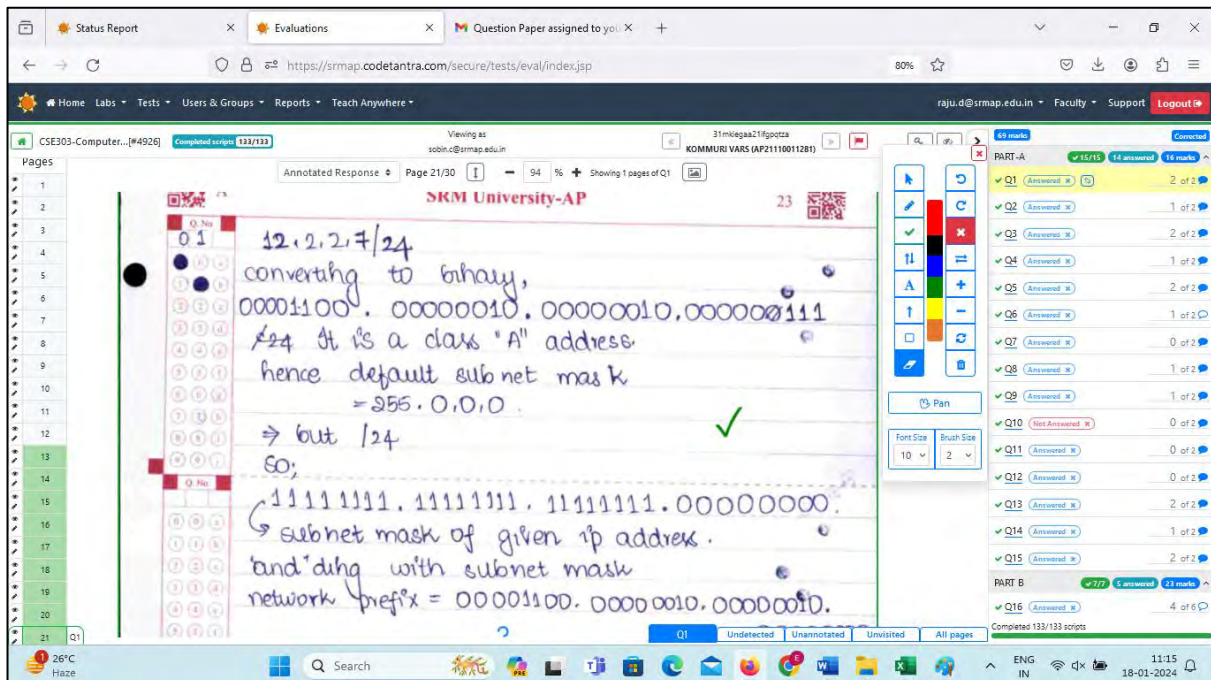 Status Report
Evaluations
Question Paper assigned to you
https://srmap.codetantra.com/secure/tests/eval/index.jsp
80%
Home Labs Tests Users & Groups Reports Teach Anywhere
raju.d@srmap.edu.in Faculty Support Logout
CSE303-Computer...[#4926] Completed scripts 133/133
Viewing as
sobin.c@srmap.edu.in
31mkiegaa21ifgpqtza
KOMMURI VARS (AP21110011281)
Pages
Annotated Response Page 21/30 94 % Showing 1 pages of Q1
1
2
3
4
5
6
7
8
9
10
11
12
13
14
15
16
17
18
19
20
21 Q1
SRM University-AP 23
Q. No
01
12.2.2.7/24
converting to binary,
00001100. 00000010. 00000010.00000111
/24 It is a class "A" address.
hence default subnet mask
= 255.0.0.0.
⇒ but /24
so;
Q. No
11111111. 11111111. 11111111.00000000.
subnet mask of given ip address.
'and'ding with subnet mask
network prefix = 00001100. 00000010. 00000010.
Q1 Undetected Unannotated Unvisited All pages
Pan
Font Size Brush Size
10 2
69 marks Corrected
PART-A 15/15 14 answered 16 marks
Q1 Answered 2 of 2
Q2 Answered 1 of 2
Q3 Answered 2 of 2
Q4 Answered 1 of 2
Q5 Answered 2 of 2
Q6 Answered 1 of 2
Q7 Answered 0 of 2
Q8 Answered 1 of 2
Q9 Answered 1 of 2
Q10 Not Answered 0 of 2
Q11 Answered 0 of 2
Q12 Answered 0 of 2
Q13 Answered 2 of 2
Q14 Answered 1 of 2
Q15 Answered 2 of 2
PART B 7/7 5 answered 23 marks
Q16 Answered 4 of 6
Completed 133/133 scripts
26°C
Haze
Search
ENG
IN
11:15
18-01-2024